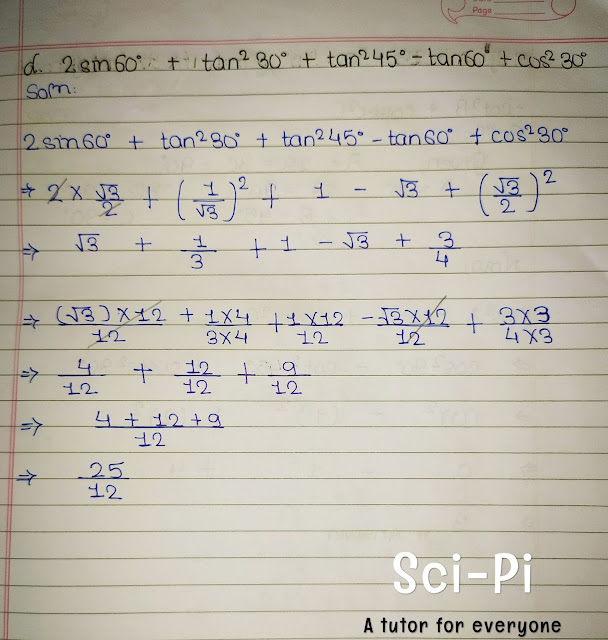 Page
d. 2sin60° + tan²30° + tan²45° - tan60° + cos²30°
Soln:
2sin60° + tan²30° + tan²45° - tan60° + cos²30°
⇒ 2 × √3/2 + (1/√3)² + 1 - √3 + (√3/2)²
⇒ √3 + 1/3 + 1 - √3 + 3/4
⇒ (√3)×12/12 + 1×4/3×4 + 1×12/12 - √3×12/12 + 3×3/4×3
⇒ 4/12 + 12/12 + 9/12
⇒ 4 + 12 + 9/12
⇒ 25/12
Sci-Pi
A tutor for everyone